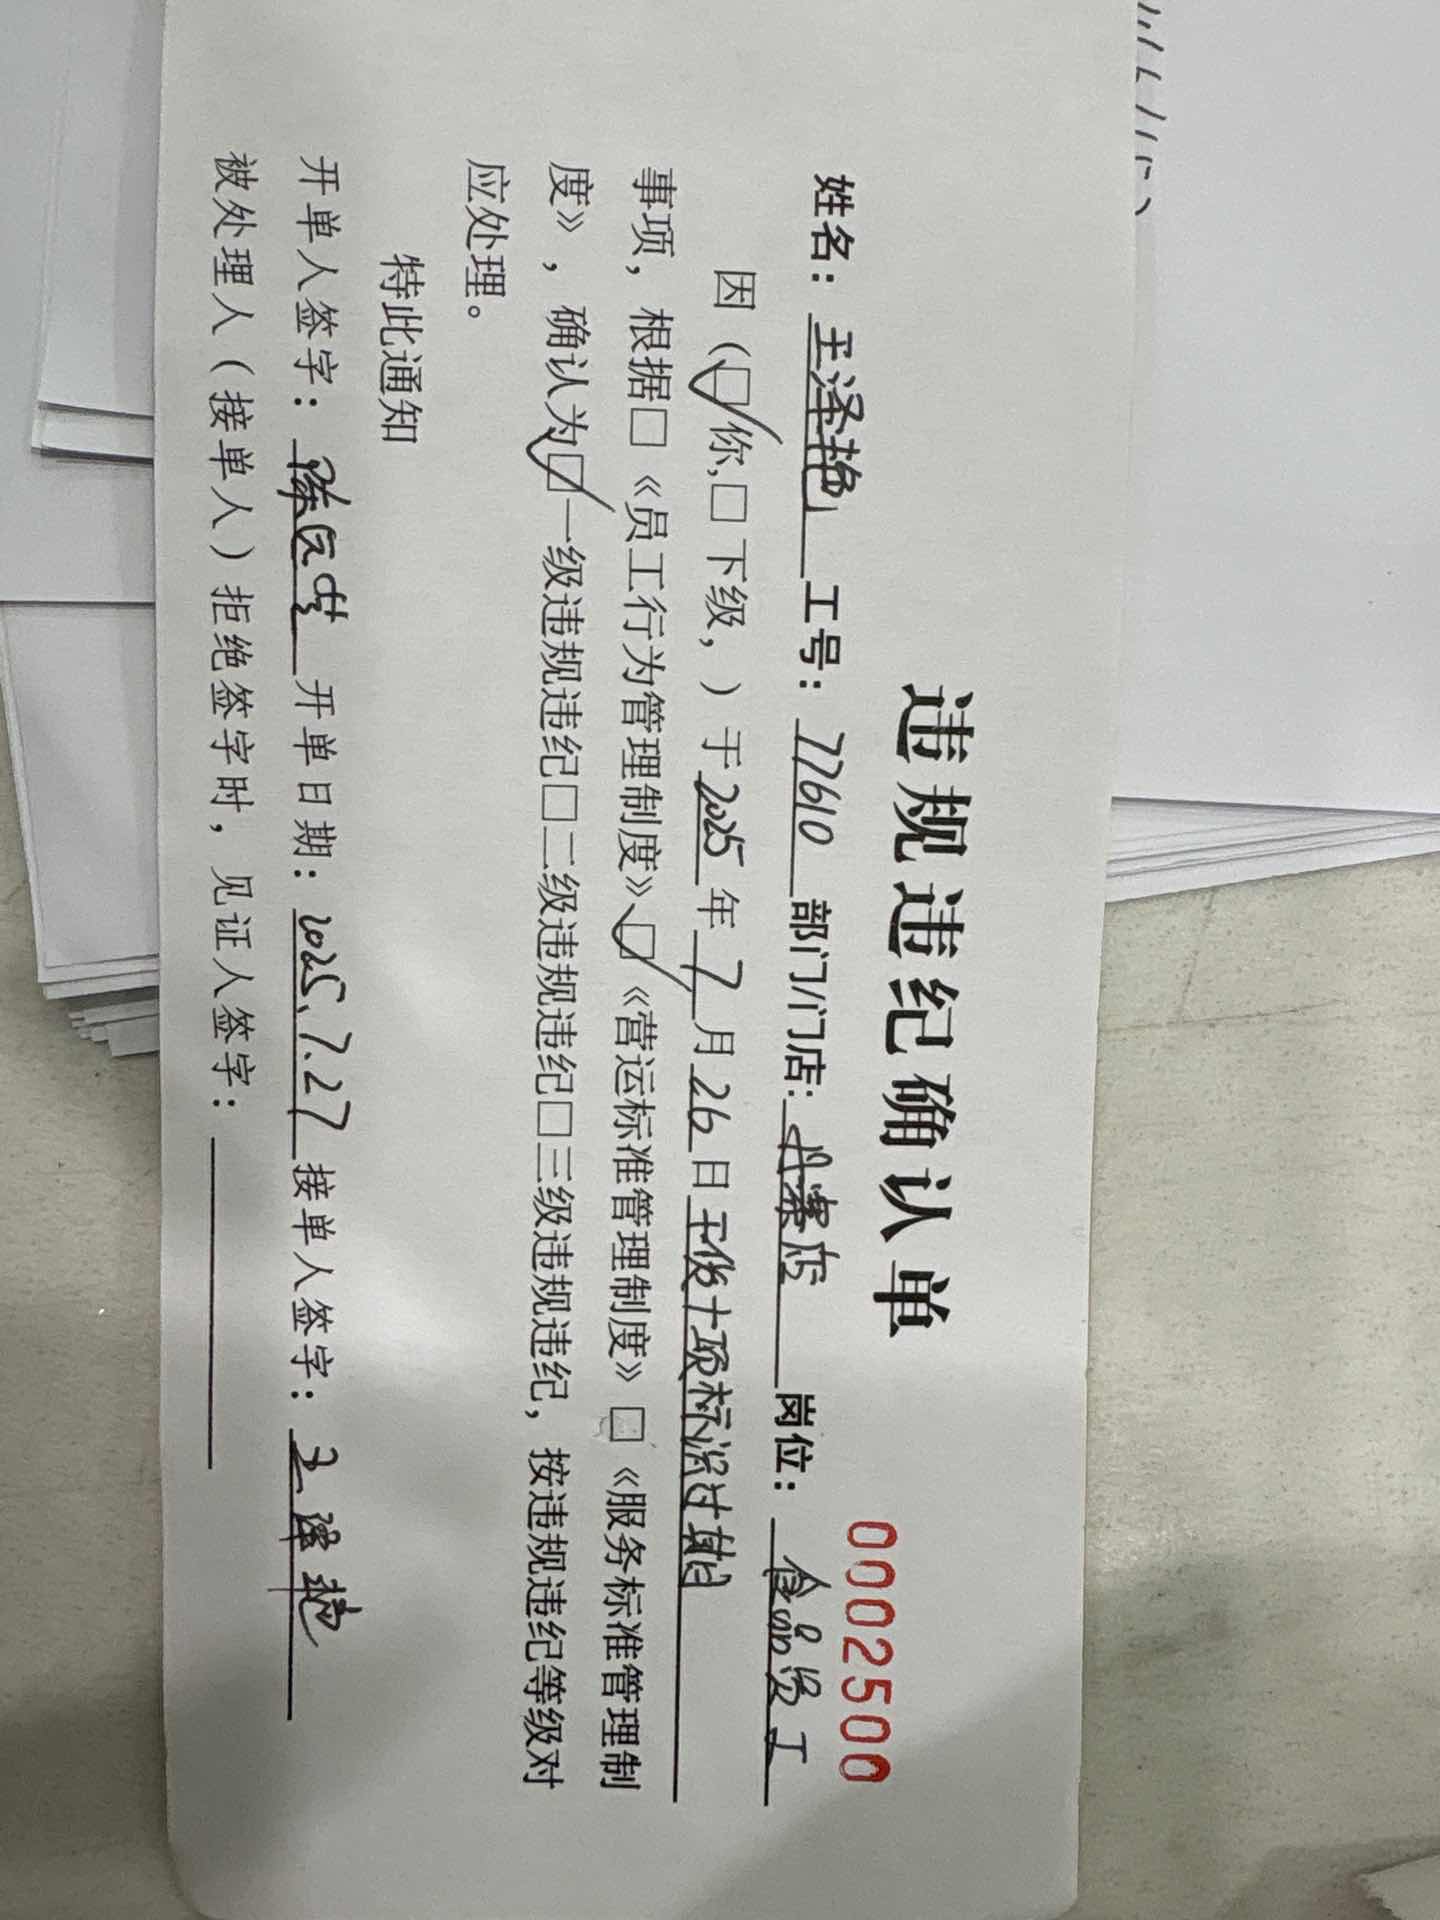 违规违纪确认单
0002500
姓名：王泽艳 工号：77610 部门/门店：店 岗位：食品员工
因（☑你,☐下级，）于2025年7月26日 十项标识过期
事项，根据☐《员工行为管理制度》☑《营运标准管理制度》☐《服务标准管理制
度》，确认为☑一级违规违纪☐二级违规违纪☐三级违规违纪，按违规违纪等级对
应处理。
特此通知
开单人签字：陈 开单日期：2025.7.27 接单人签字：王泽艳
被处理人（接单人）拒绝签字时，见证人签字：